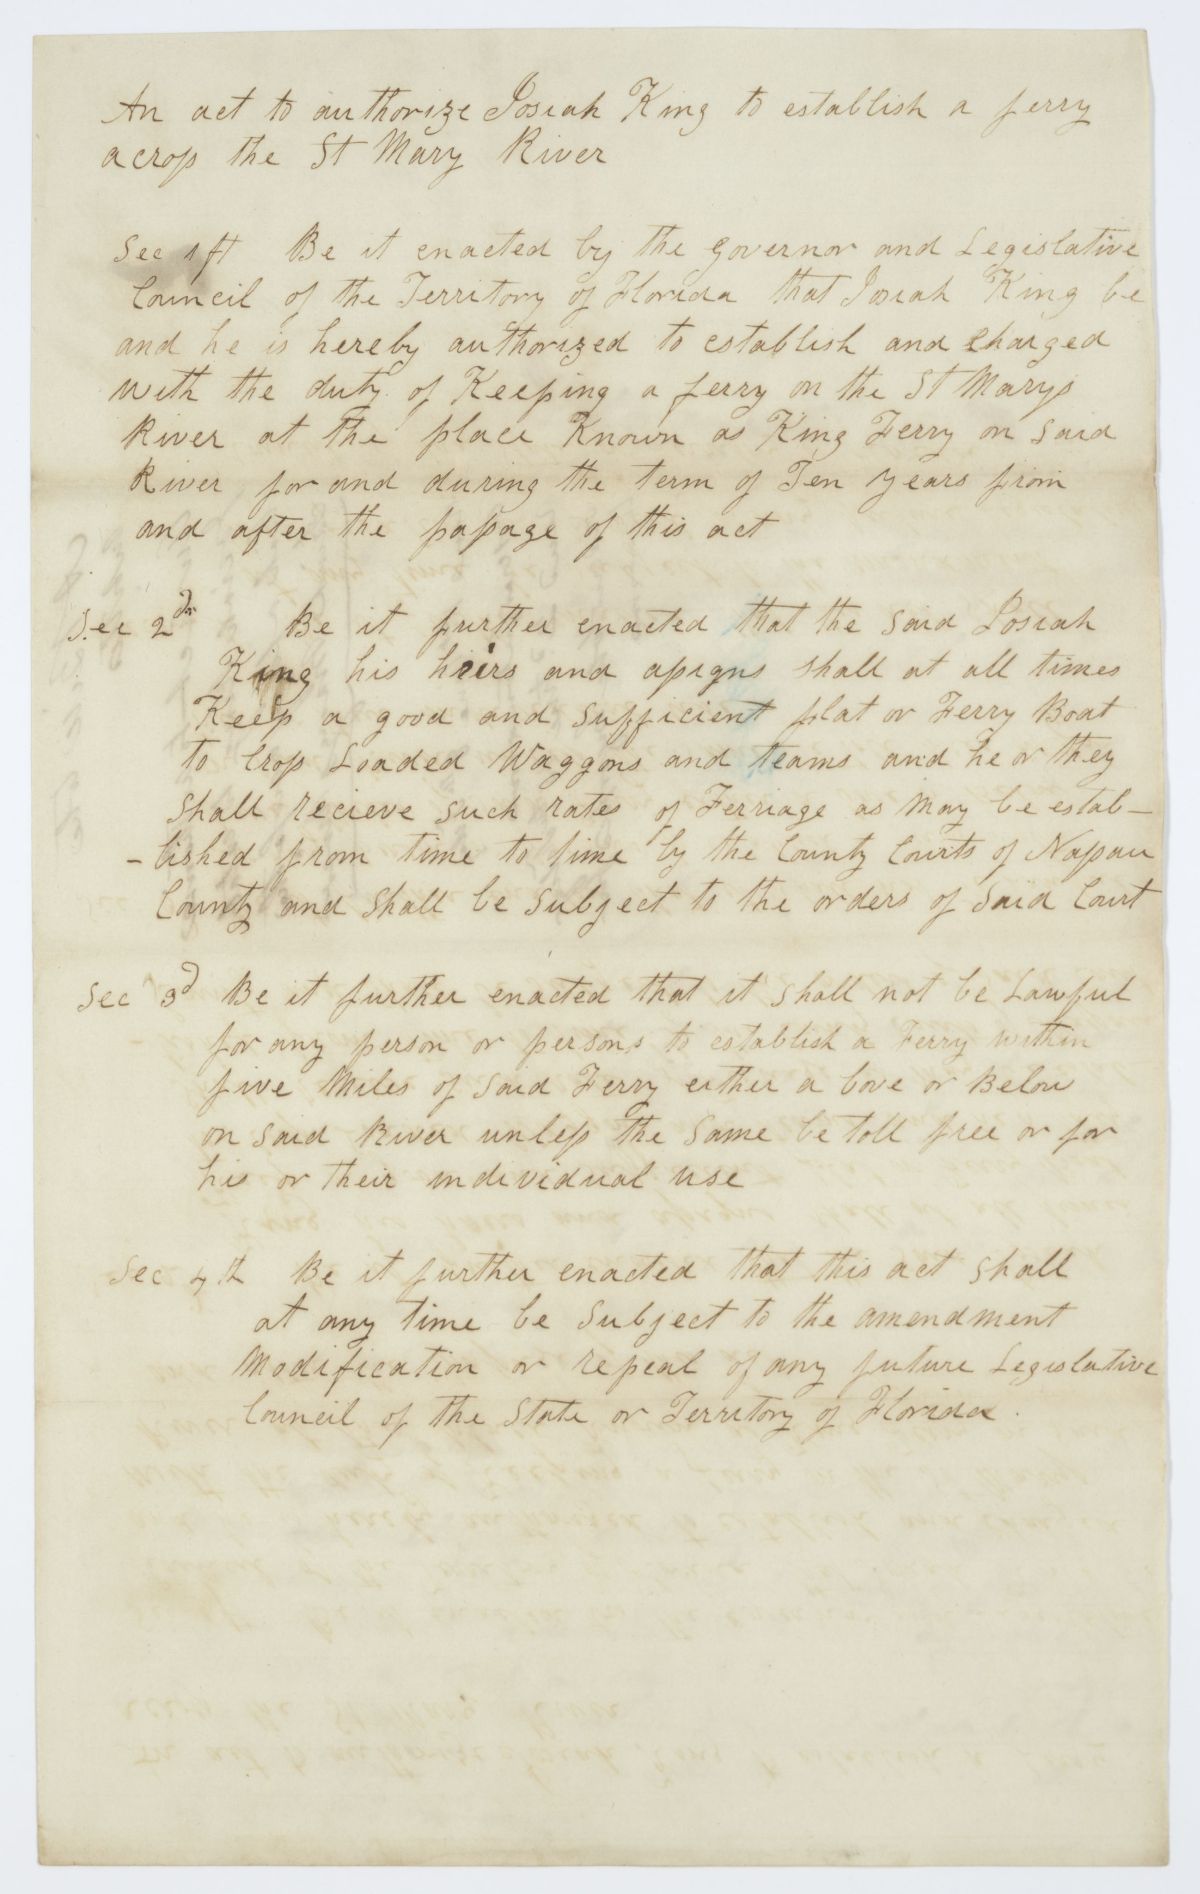 An act to authorize Josiah King to establish a ferry
across the St Mary River
Sec 1st Be it enacted by the Governor and Legislative
Council of the Territory of Florida that Josiah King be
and he is hereby authorized to establish and Charged
with the duty of Keeping a ferry on the St Marys
River at the place Known as King Ferry on said
River for and during the term of Ten years from
and after the passage of this act
Sec 2d Be it further enacted that the said Josiah
King his heirs and assigns shall at all times
Keep a good and sufficient flat or Ferry Boat
to Cross Loaded Waggons and teams and he or they
shall recieve such rates of Ferriage as May be estab-
-lished from time to time by the County Courts of Nassau
County and shall be subject to the orders of said Court
Sec 3d Be it further enacted that it shall not be Lawful
for any person or persons to establish a Ferry within
five Miles of said Ferry either a bove or Below
on said River unless the same be toll free or for
his or their individual use
Sec 4th Be it further enacted that this act shall
at any time be subject to the amendment
Modification or repeal of any future Legislative
Council of the State or Territory of Florida.